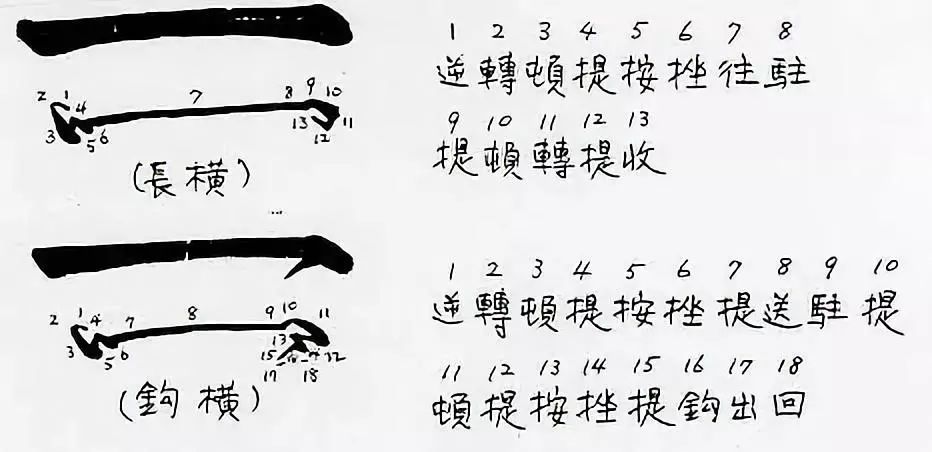 1 2 3 4 5 6 7 8
逆轉頓提按挫往駐
9 10 11 12 13
提頓轉提收
2 1 4 7 8 9 10
3 5 6 13 12 11
(長橫)
1 2 3 4 5 6 7 8 9 10
逆轉頓提按挫提送駐提
11 12 13 14 15 16 17 18
頓提按挫提鈎出回
2 1 4 7 8 9 10 11
3 5 6 13 15 16 14 12
17 18
(鈎橫)